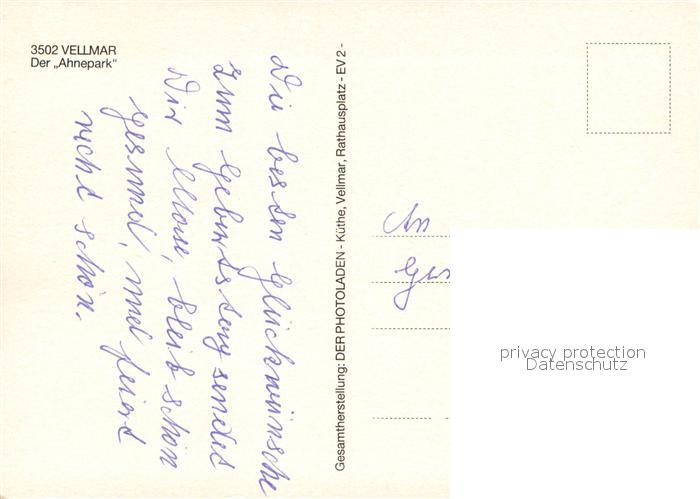 3502 VELLMAR
Der „Ahnepark“
Die besten Glückwünsche
zum Geburtstag sendet
Dir Mone, bleib schön
gesund, und feiert
recht schön.
Gesamtherstellung: DER PHOTOLADEN - Küthe, Vellmar, Rathausplatz - EV 2 -
An
privacy protection
Datenschutz